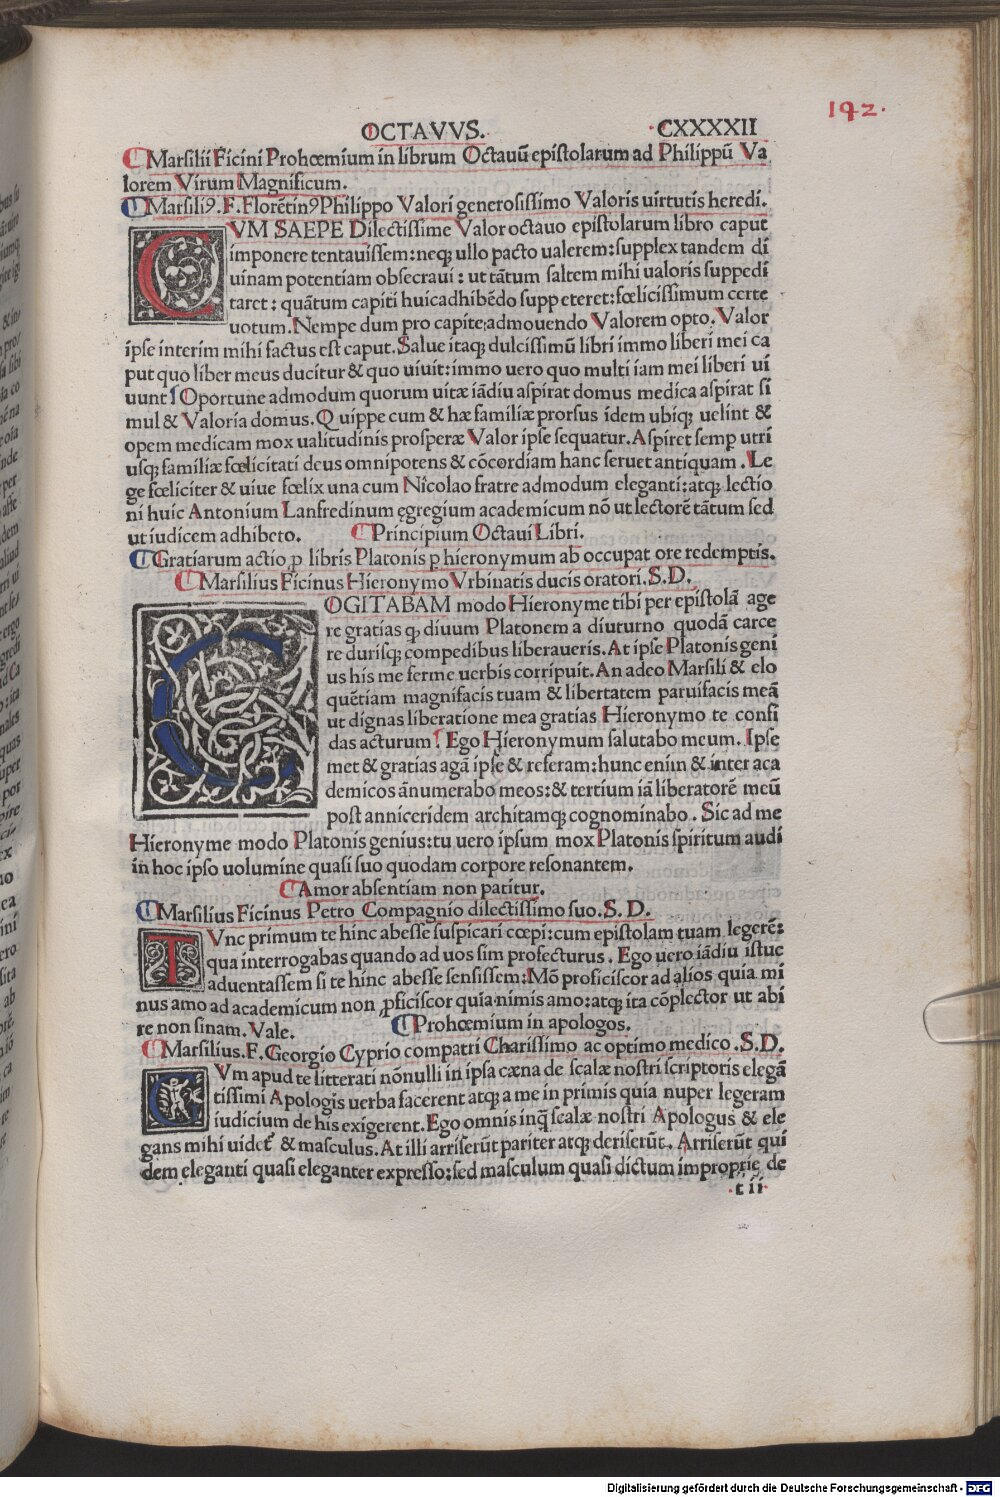 142.
OCTAVVS. CXXXXII
Marsilii Ficini Prohœmium in librum Octauū epistolarum ad Philippū Va
lorem Virum Magnificum.
Marsiliꝰ. F. Florētinꝰ Philippo Valori generosissimo Valoris uirtutis heredi.
CVM SAEPE Dilectissime Valor octauo epistolarum libro caput
imponere tentauissem: neqꝫ ullo pacto ualerem: supplex tandem di
uinam potentiam obsecraui: ut tātum saltem mihi ualoris suppedi
taret: quātum capiti huic adhibēdo suppeteret: fœlicissimum certe
uotum. Nempe dum pro capite, admouendo Valorem opto. Valor
ipse interim mihi factus est caput. Salue itaqꝫ dulcissimū libri immo liberi mei ca
put quo liber meus ducitur & quo uiuit: immo uero quo multi iam mei liberi ui
uunt! Oportune admodum quorum uitæ iādiu aspirat domus medica aspirat si
mul & Valoria domus. Quippe cum & hæ familiæ prorsus idem ubiqꝫ uelint &
opem medicam mox ualitudinis prosperæ Valor ipse sequatur. Aspiret semꝑ utri
usqꝫ familiæ fœlicitati deus omnipotens & cōcordiam hanc seruet antiquam. Le
ge fœliciter & uiue fœlix una cum Nicolao fratre admodum eleganti: atqꝫ lectio
ni huic Antonium Lanfredinum ęgregium academicum nō ut lectorē tātum sed
ut iudicem adhibeto. Principium Octaui Libri.
Gratiarum actio ꝓ libris Platonis ꝑ hieronymum ab occupatore redemptis.
Marsilius Ficinus Hieronymo Vrbinatis ducis oratori. S. D.
COGITABAM modo Hieronyme tibi per epistolā age
re gratias ꝙ diuum Platonem a diuturno quodā carce
re durisqꝫ compedibus liberaueris. At ipse Platonis geni
us his me ferme uerbis corripuit. An adeo Marsili & elo
quētiam magnifacis tuam & libertatem paruifacis meā
ut dignas liberatione mea gratias Hieronymo te confi
das acturum? Ego Hieronymum salutabo meum. Ipse
met & gratias agā ipse & referam: hunc enim & inter aca
demicos ānumerabo meos: & tertium iā liberatorē meū
post anniceridem architamqꝫ cognominabo. Sic ad me
Hieronyme modo Platonis genius: tu uero ipsum mox Platonis spiritum audi
in hoc ipso uolumine quasi suo quodam corpore resonantem.
Amor absentiam non patitur.
Marsilius Ficinus Petro Compagnio dilectissimo suo. S. D.
TVnc primum te hinc abesse suspicari cœpi: cum epistolam tuam legerē:
qua interrogabas quando ad uos sim profecturus. Ego uero iādiu istuc
aduentassem si te hinc abesse sensissem: Mō proficiscor ad alios quia mi
nus amo ad academicum non ꝓficiscor quia nimis amo: atqꝫ ita cōplector ut abi
re non sinam. Vale. Prohœmium in apologos.
Marsilius. F. Georgio Cyprio compatri Charissimo ac optimo medico. S. D.
CVm apud te litterati nōnulli in ipsa cæna de scalæ nostri scriptoris elegā
tissimi Apologis uerba facerent atqꝫ a me in primis quia nuper legeram
iudicium de his exigerent. Ego omnis inꝗ scalæ nostri Apologus & ele
gans mihi uidet & masculus. At illi arriserūt pariter atqꝫ deriserūt. Arriserūt qui
dem eleganti quasi eleganter expresso: sed masculum quasi dictum improprie de
t ii
Digitalisierung gefördert durch die Deutsche Forschungsgemeinschaft - DFG